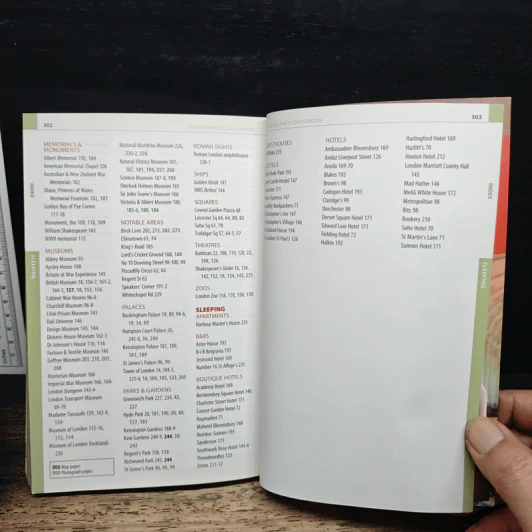 302
LONELYPLANET.COM/LONDON
MEMORIALS &
MONUMENTS
Albert Memorial 180, 184
American Memorial Chapel 106
Australian & New Zealand War
Memorials 182
Diana, Princess of Wales
Memorial Fountain 182, 183
Golden Boy of Pye Corner
117-18
Monument, the 109, 118, 109
William Shakespeare 145
WWII memorial 115
MUSEUMS
Abbey Museum 93
Apsley House 180
Britain at War Experience 145
British Museum 18, 156-7, 163-2,
164-5, 157, 18, 153, 156
Cabinet War Rooms 96-8
Churchill Museum 96-8
Clink Prison Museum 143
Dalí Universe 146
Design Museum 145, 144
Dickens House Museum 162-3
Dr Johnson's House 116, 114
Fashion & Textile Museum 146
Geffrye Museum 203, 210, 203,
208
Hunterian Museum 166
Imperial War Museum 166, 164
London Dungeon 143-4
London Transport Museum
69-70
Madame Tussauds 159, 163-4,
159
Museum of London 115-16,
112, 114
Museum of London Docklands
230
000 Map pages
000 Photograph pages
National Maritime Museum 226,
230-2, 228
Natural History Museum 181,
187, 181, 194, 357, 266
Science Museum 187-8, 185
Sherlock Holmes Museum 163
Sir John Soane's Museum
Victoria & Albert Museum 180,
185-6, 180, 184
NOTABLE AREAS
Brick Lane 202, 213, 202, 273
Chinatown 67, 74
King's Road 185
Lord's Cricket Ground 168, 168
No 10 Downing Street 98-100, 99
Piccadilly Circus 62, 62
Regent St 63
Speakers' Corner 191-2
Whitechapel Rd 229
PALACES
Buckingham Palace 19, 89, 94-6,
19, 34, 89
Hampton Court Palace 26,
245-8, 26, 246
Kensington Palace 181, 189,
181, 189
St James's Palace 96, 99
Tower of London 14, 104-5,
121-4, 14, 104, 105, 122, 265
PARKS & GARDENS
Greenwich Park 227, 234, 42,
227
Hyde Park 28, 181, 190, 39, 40,
177, 181
Kensington Gardens 188-9
Kew Gardens 248-9, 244, 30,
243
Regent's Park 158, 158
Richmond Park 245, 244
St James's Park 96, 99, 99
ROMAN SIGHTS
Roman London amphitheatre
120-1
SHIPS
Golden Hinde 141
HMS Belfast 144
SQUARES
Covent Garden Piazza 68
Leicester Sq 64, 84, 80, 82
Soho Sq 67, 74
Trafalgar Sq 57, 64-5, 57
THEATRES
Barbican 22, 108, 119, 128, 33,
108, 126
Shakespeare's Globe 16, 134,
142, 152, 16, 134, 142, 273
ZOOS
London Zoo 158, 170, 158, 170
SLEEPING
APARTMENTS
Harbour Master's House 235
B&BS
Aster House 193
B+B Belgravia 192
Jesmond Hotel 169
Number 16 St Alfege's 235
BOUTIQUE HOTELS
Academy Hotel 169
Bermondsey Square Hotel 146
Charlotte Street Hotel 171
Covent Garden Hotel 72
Haymarket 71
Myhotel Bloomsbury 168
Number Sixteen 193
Sanderson 171
Southwark Rose Hotel 145-6
Threadneedles 125
Zetter 211-12
INDEX
SLEEPING
303
HOTELS
Ambassadors Bloomsbury 169
Andaz Liverpool Street 126
Arosfa 169-70
Blakes 192
Brown's 98
Cadogan Hotel 193
Claridge's 99
Dorchester 98
Dorset Square Hotel 171
Edward Lear Hotel 171
Fielding Hotel 72
Halkin 192
Harlingford Hotel 169
Hazlitt's 70
Hoxton Hotel 212
London Marriott County Hall
145
Mad Hatter 146
Meliã White House 172
Metropolitan 98
Ritz 98
Rookery 210
Soho Hotel 70
St Martin's Lane 71
Sumner Hotel 171
INDEX
SLEEPING